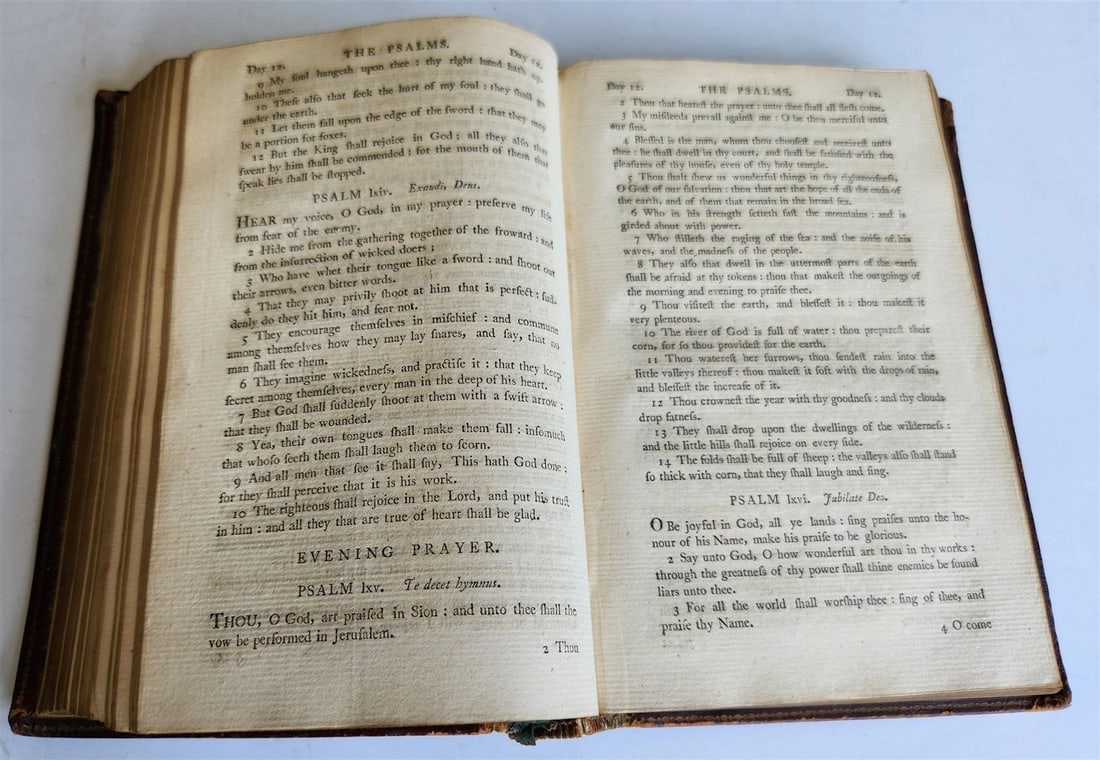 THE PSALMS.
Day 12. Day 12.
9 My ſoul hangeth upon thee : thy right hand hath up-
holden me.
10 Theſe alſo that ſeek the hurt of my ſoul : they ſhall go
under the earth.
11 Let them fall upon the edge of the ſword : that they may
be a portion for foxes.
12 But the King ſhall rejoice in God ; all they alſo that
ſwear by him ſhall be commended : for the mouth of them that
ſpeak lies ſhall be ſtopped.
PSALM lxiv. Exaudi, Deus.
HEAR my voice, O God, in my prayer : preſerve my life
from fear of the enemy.
2 Hide me from the gathering together of the froward : and
from the inſurrection of wicked doers ;
3 Who have whet their tongue like a ſword : and ſhoot out
their arrows, even bitter words.
4 That they may privily ſhoot at him that is perfect : ſud-
denly do they hit him, and fear not.
5 They encourage themſelves in miſchief : and commune
among themſelves how they may lay ſnares, and ſay, that no
man ſhall ſee them.
6 They imagine wickedneſs, and practiſe it : that they keep
ſecret among themſelves, every man in the deep of his heart.
7 But God ſhall ſuddenly ſhoot at them with a ſwift arrow :
that they ſhall be wounded.
8 Yea, their own tongues ſhall make them fall : inſomuch
that whoſo ſeeth them ſhall laugh them to ſcorn.
9 And all men that ſee it ſhall ſay, This hath God done :
for they ſhall perceive that it is his work.
10 The righteous ſhall rejoice in the Lord, and put his truſt
in him : and all they that are true of heart ſhall be glad.
EVENING PRAYER.
PSALM lxv. Te decet hymnus.
THOU, O God, art praiſed in Sion : and unto thee ſhall the
vow be performed in Jeruſalem.
2 Thou
Day 12. THE PSALMS. Day 12.
2 Thou that heareſt the prayer : unto thee ſhall all fleſh come.
3 My miſdeeds prevail againſt me : O be thou merciful unto
our ſins.
4 Bleſſed is the man, whom thou chooſeſt and receiveſt unto
thee : he ſhall dwell in thy court, and ſhall be ſatisfied with the
pleaſures of thy houſe, even of thy holy temple.
5 Thou ſhalt ſhew us wonderful things in thy righteouſneſs,
O God of our ſalvation : thou that art the hope of all the ends of
the earth, and of them that remain in the broad ſea.
6 Who in his ſtrength ſetteth faſt the mountains : and is
girded about with power.
7 Who ſtilleth the raging of the ſea : and the noiſe of his
waves, and the madneſs of the people.
8 They alſo that dwell in the uttermoſt parts of the earth
ſhall be afraid at thy tokens : thou that makeſt the outgoings of
the morning and evening to praiſe thee.
9 Thou viſiteſt the earth, and bleſſeſt it : thou makeſt it
very plenteous.
10 The river of God is full of water : thou prepareſt their
corn, for ſo thou provideſt for the earth.
11 Thou watereſt her furrows, thou ſendeſt rain into the
little valleys thereof : thou makeſt it ſoft with the drops of rain,
and bleſſeſt the increaſe of it.
12 Thou crowneſt the year with thy goodneſs : and thy clouds
drop fatneſs.
13 They ſhall drop upon the dwellings of the wilderneſs :
and the little hills ſhall rejoice on every ſide.
14 The folds ſhall be full of ſheep : the valleys alſo ſhall ſtand
ſo thick with corn, that they ſhall laugh and ſing.
PSALM lxvi. Jubilate Deo.
O Be joyful in God, all ye lands : ſing praiſes unto the ho-
nour of his Name, make his praiſe to be glorious.
2 Say unto God, O how wonderful art thou in thy works :
through the greatneſs of thy power ſhall thine enemies be found
liars unto thee.
3 For all the world ſhall worſhip thee : ſing of thee, and
praiſe thy Name.
4 O come